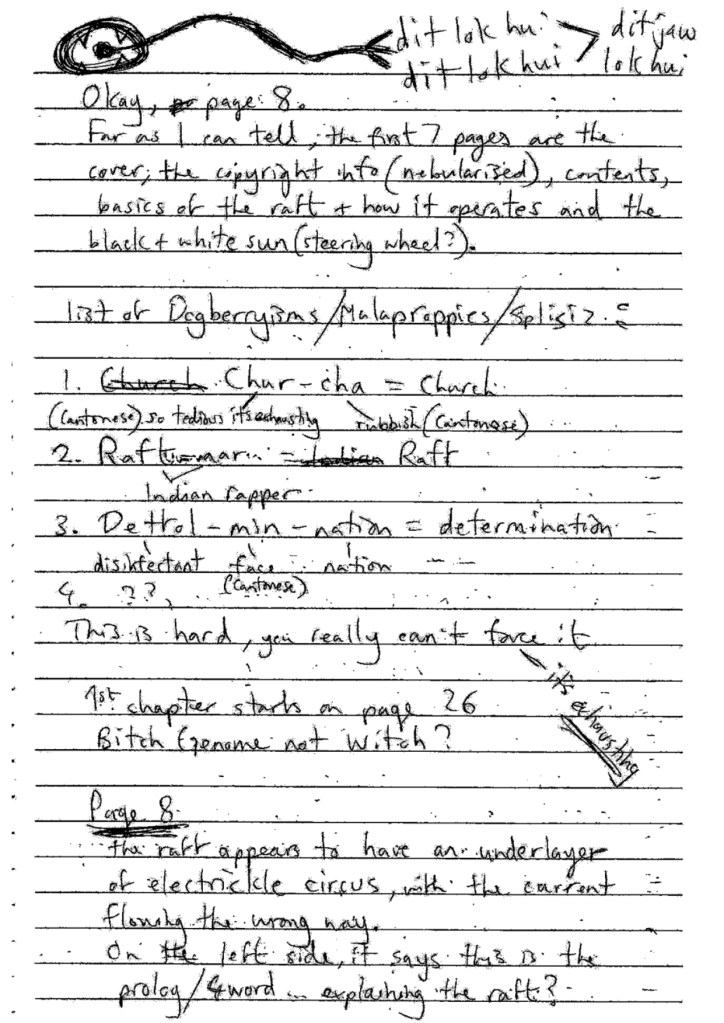 dit lok hui > dit jaw
dit lok hui lok hui
Okay, page 8.
Far as I can tell, the first 7 pages are the
cover, the copyright info (nebularised), contents,
basics of the raft + how it operates and the
black + white sun (steering wheel?).
list of Dogberryisms/Malaproppies/Spligiz :
1. Church Chur-cha = Church
(Cantonese) so tedious it's exhausting rubbish (Cantonese)
2. = Indian Raft
Indian rapper
3. Dettol-min-nation = determination
disinfectant face nation
(Cantonese)
4. ??
This is hard, you really can't force it
it's exhausting
1st chapter starts on page 26
Bitch Genome not Witch?
Page 8
the raft appears to have an underlayer
of electrickle circus, with the current
flowing the wrong way.
On the left side, it says this is the
prolog/4word... explaining the raft?